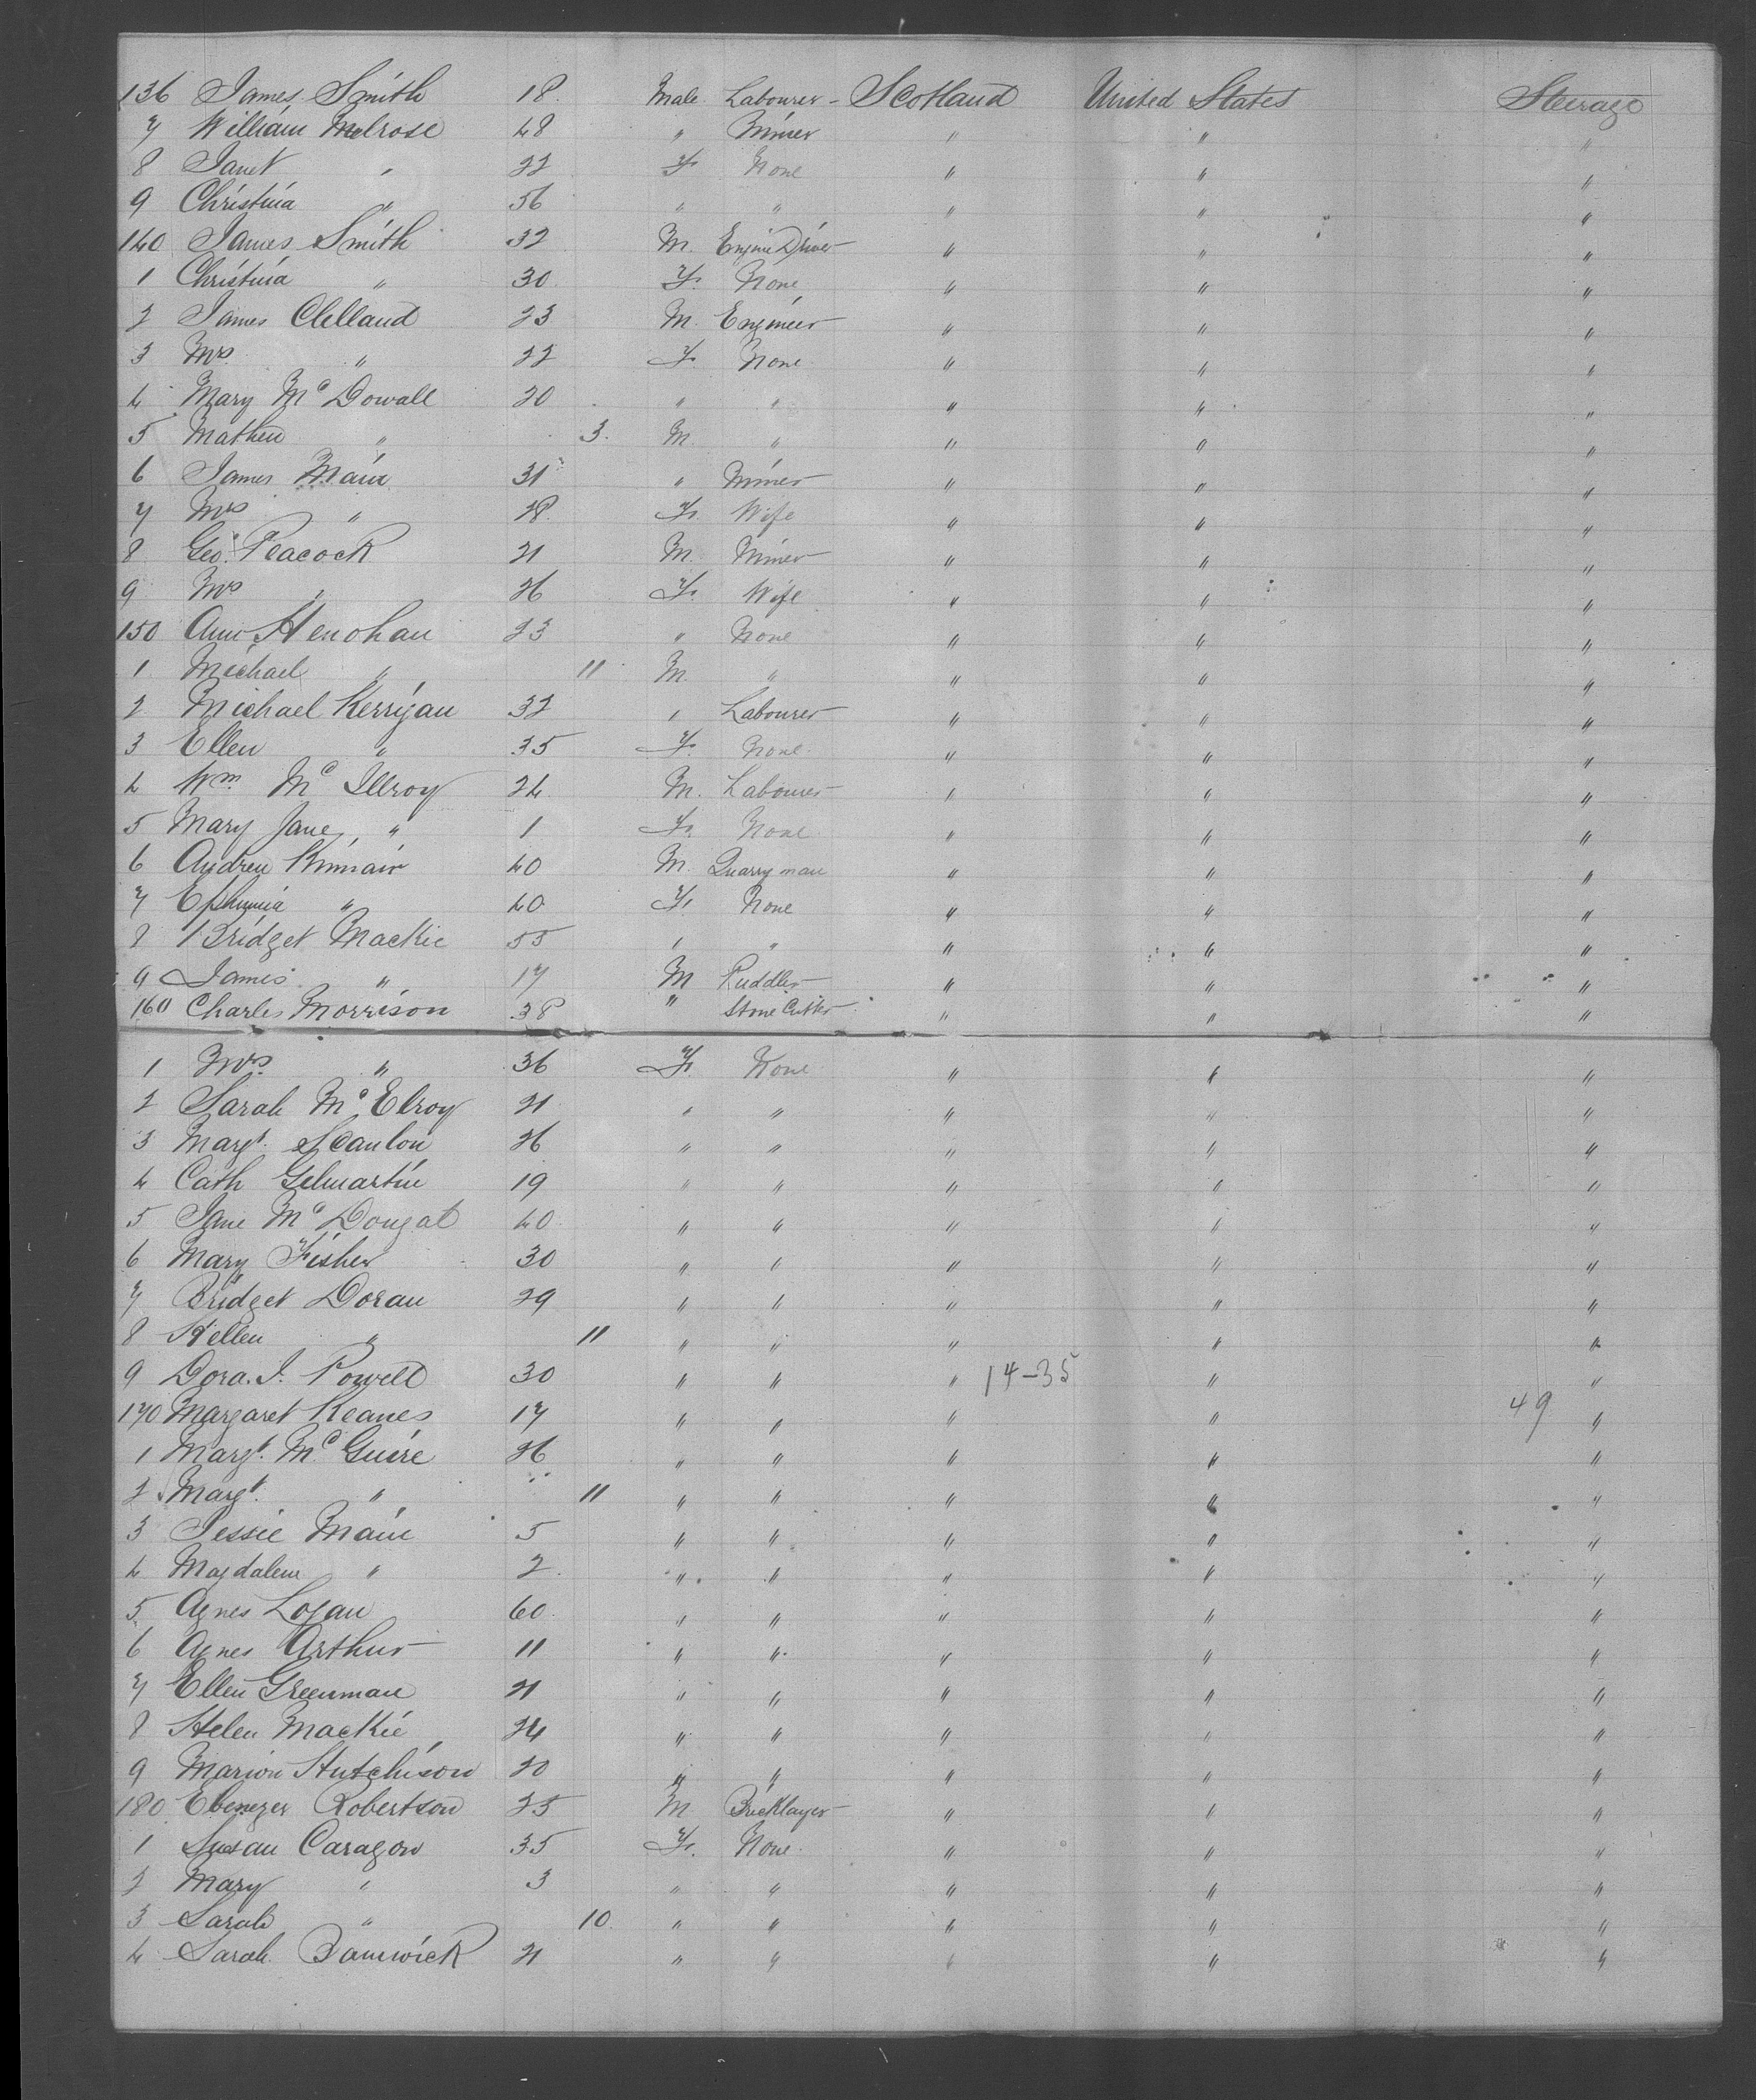 136 James Smith 18 Male Labourer - Scotland United States Steerage
7 William Melrose 48 " Miner " " "
8 Janet " 22 F. None " " "
9 Christina " 56 " " " " "
140 James Smith 32 M. Engine Driver " " "
1 Christina " 30 F. None " " "
2 James Clelland 23 M. Engineer " " "
3 Mrs " 22 F. None " " "
4 Mary Mc Dowall 20 " " " " "
5 Mathew " 3. M. " " " "
6 James Main 31 " Miner " " "
7 Mrs " 28 F. Wife " " "
8 Geo. Peacock 21 M. Miner " " "
9 Mrs " 26 F. Wife " " "
150 Ann Henohan 23 " None " " "
1 Michael " 11 M. " " " "
2 Michael Kerrigan 32 " Labourer " " "
3 Ellen " 35 F. None " " "
4 Wm. Mc Illroy 24 M. Labourer " " "
5 Mary Jane " 1 F. None " " "
6 Andrew Kinnair 40 M. Quarryman " " "
7 Ephumia " 40 F. None " " "
8 Bridget Mackie 55 " " " " "
9 James " 17 M Puddler " " "
160 Charles Morrison 38 " Stone Cutter " " "
1 Mrs. " 36 F. None " " "
2 Sarah Mc Elroy 21 " " " " "
3 Margt. Scanlon 26 " " " " "
4 Cath Gilmartin 19 " " " " "
5 Jane Mc Dougal 40 " " " " "
6 Mary Fisher 30 " " " " "
7 Bridget Doran 29 " " " " "
8 Hellen " 11 " " " " "
9 Dora. J. Powell 30 " " " 14-35 " "
170 Margaret Keanes 17 " " " " 49 "
1 Margt. Mc Guire 26 " " " " "
2 Margt. " 11 " " " " "
3 Jessie Main 5 " " " " "
4 Magdalene " 2 " " " " "
5 Agnes Logan 60 " " " " "
6 Agnes Arthur 11 " " " " "
7 Ellen Greenman 21 " " " " "
8 Helen Mackie 24 " " " " "
9 Marion Hutchison 20 " " " " "
180 Ebenezer Robertson 25 M Bricklayer " " "
1 Susan Caragon 35 F. None " " "
2 Mary " 3 " " " " "
3 Sarah " 10 " " " " "
4 Sarah Bamwick 21 " " " " "